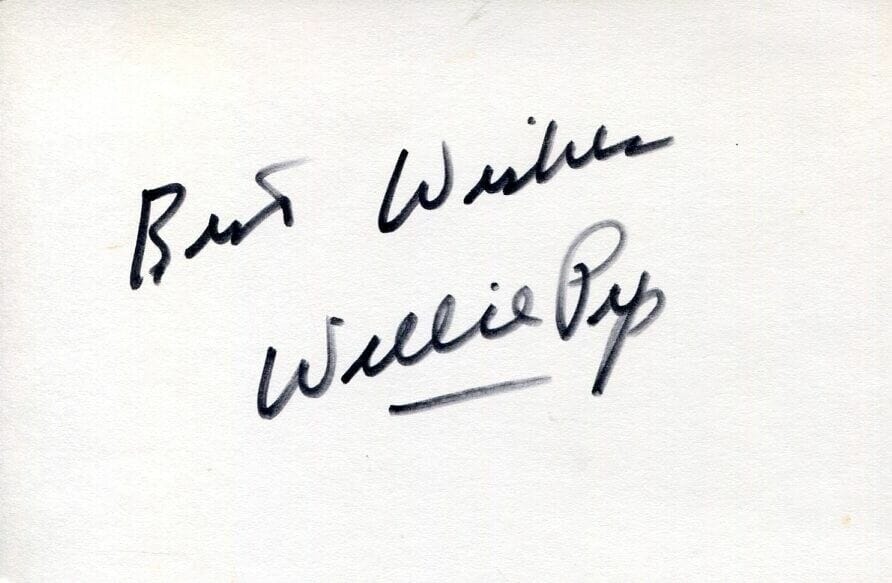 Best Wishes
Willie Pep